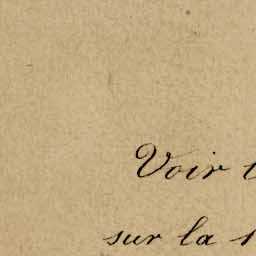 Voir
sur la